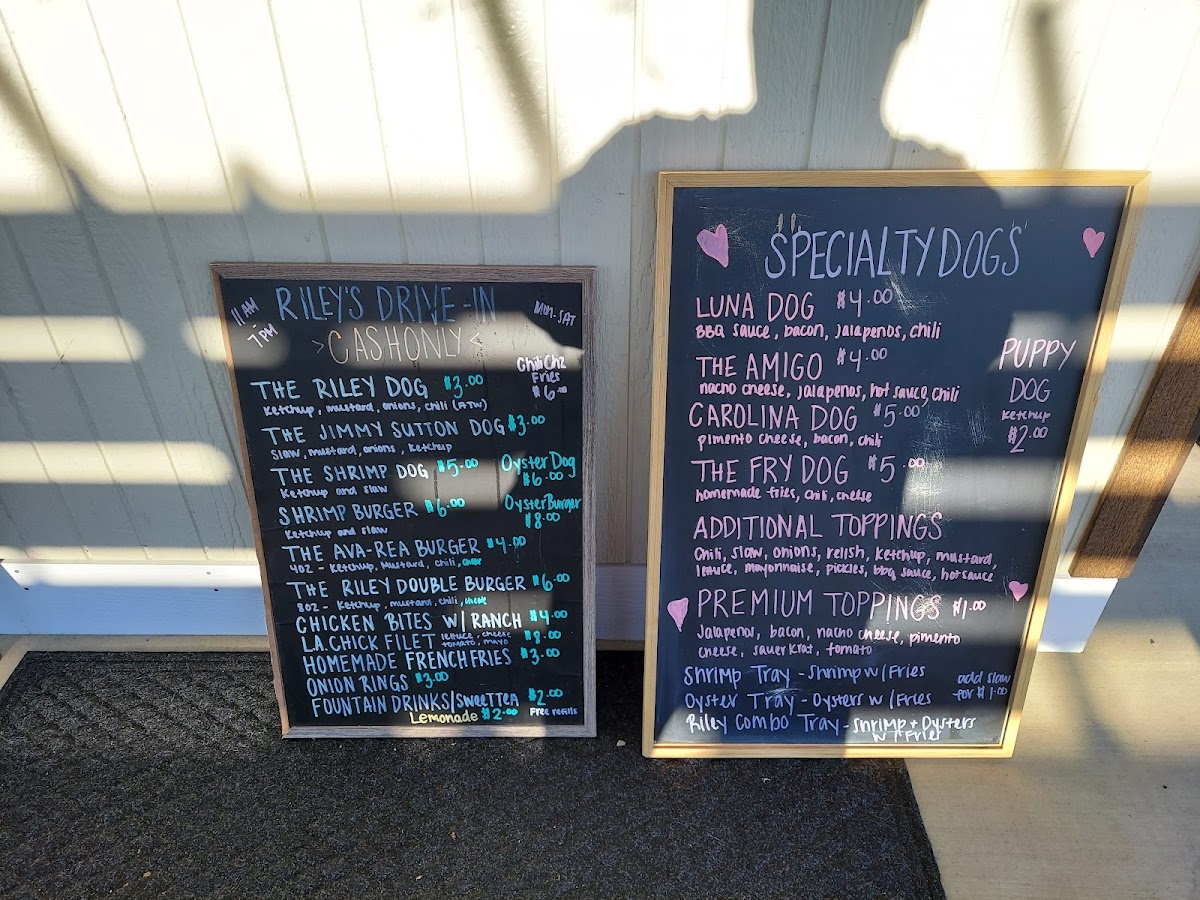 11AM
7PM
RILEY'S DRIVE-IN
MON-SAT
>CASHONLY<
Chili Chz
Fries
$6.00
THE RILEY DOG $3.00
Ketchup, mustard, onions, chili (ATW)
THE JIMMY SUTTON DOG $3.00
Slaw, mustard, onions, Ketchup
THE SHRIMP DOG $5.00
Ketchup and slaw
Oyster Dog
$6.00
SHRIMP BURGER $6.00
Ketchup and slaw
Oyster Burger
$8.00
THE AVA-REA BURGER $4.00
4OZ - Ketchup, Mustard, chili,
THE RILEY DOUBLE BURGER $6.00
8OZ - Ketchup, mustard, chili,
CHICKEN BITES W/ RANCH $4.00
L.A. CHICK FILET lettuce, cheese $8.00
tomato, mayo
HOMEMADE FRENCH FRIES $3.00
ONION RINGS $3.00
FOUNTAIN DRINKS/SweeTTEA $2.00
Lemonade $2.00 Free refills
SPECIALTY DOGS
LUNA DOG $4.00
BBQ sauce, bacon, jalapenos, chili
THE AMIGO $4.00
nacho cheese, jalapenos, hot sauce, chili
CAROLINA DOG $5.00
pimento cheese, bacon, chili
THE FRY DOG $5.00
homemade fries, chili, cheese
PUPPY
DOG
Ketchup
$2.00
ADDITIONAL TOPPINGS
Chili, slaw, onions, relish, Ketchup, mustard,
lettuce, mayonnaise, pickles, bbq sauce, hot sauce
PREMIUM TOPPINGS $1.00
Jalapenos, bacon, nacho cheese, pimento
cheese, sauer krat, tomato
Shrimp Tray - Shrimp w/Fries
Oyster Tray - Oysters w/Fries
add slaw
for $1.00
Riley Combo Tray - Shrimp + Oysters
w/Fries